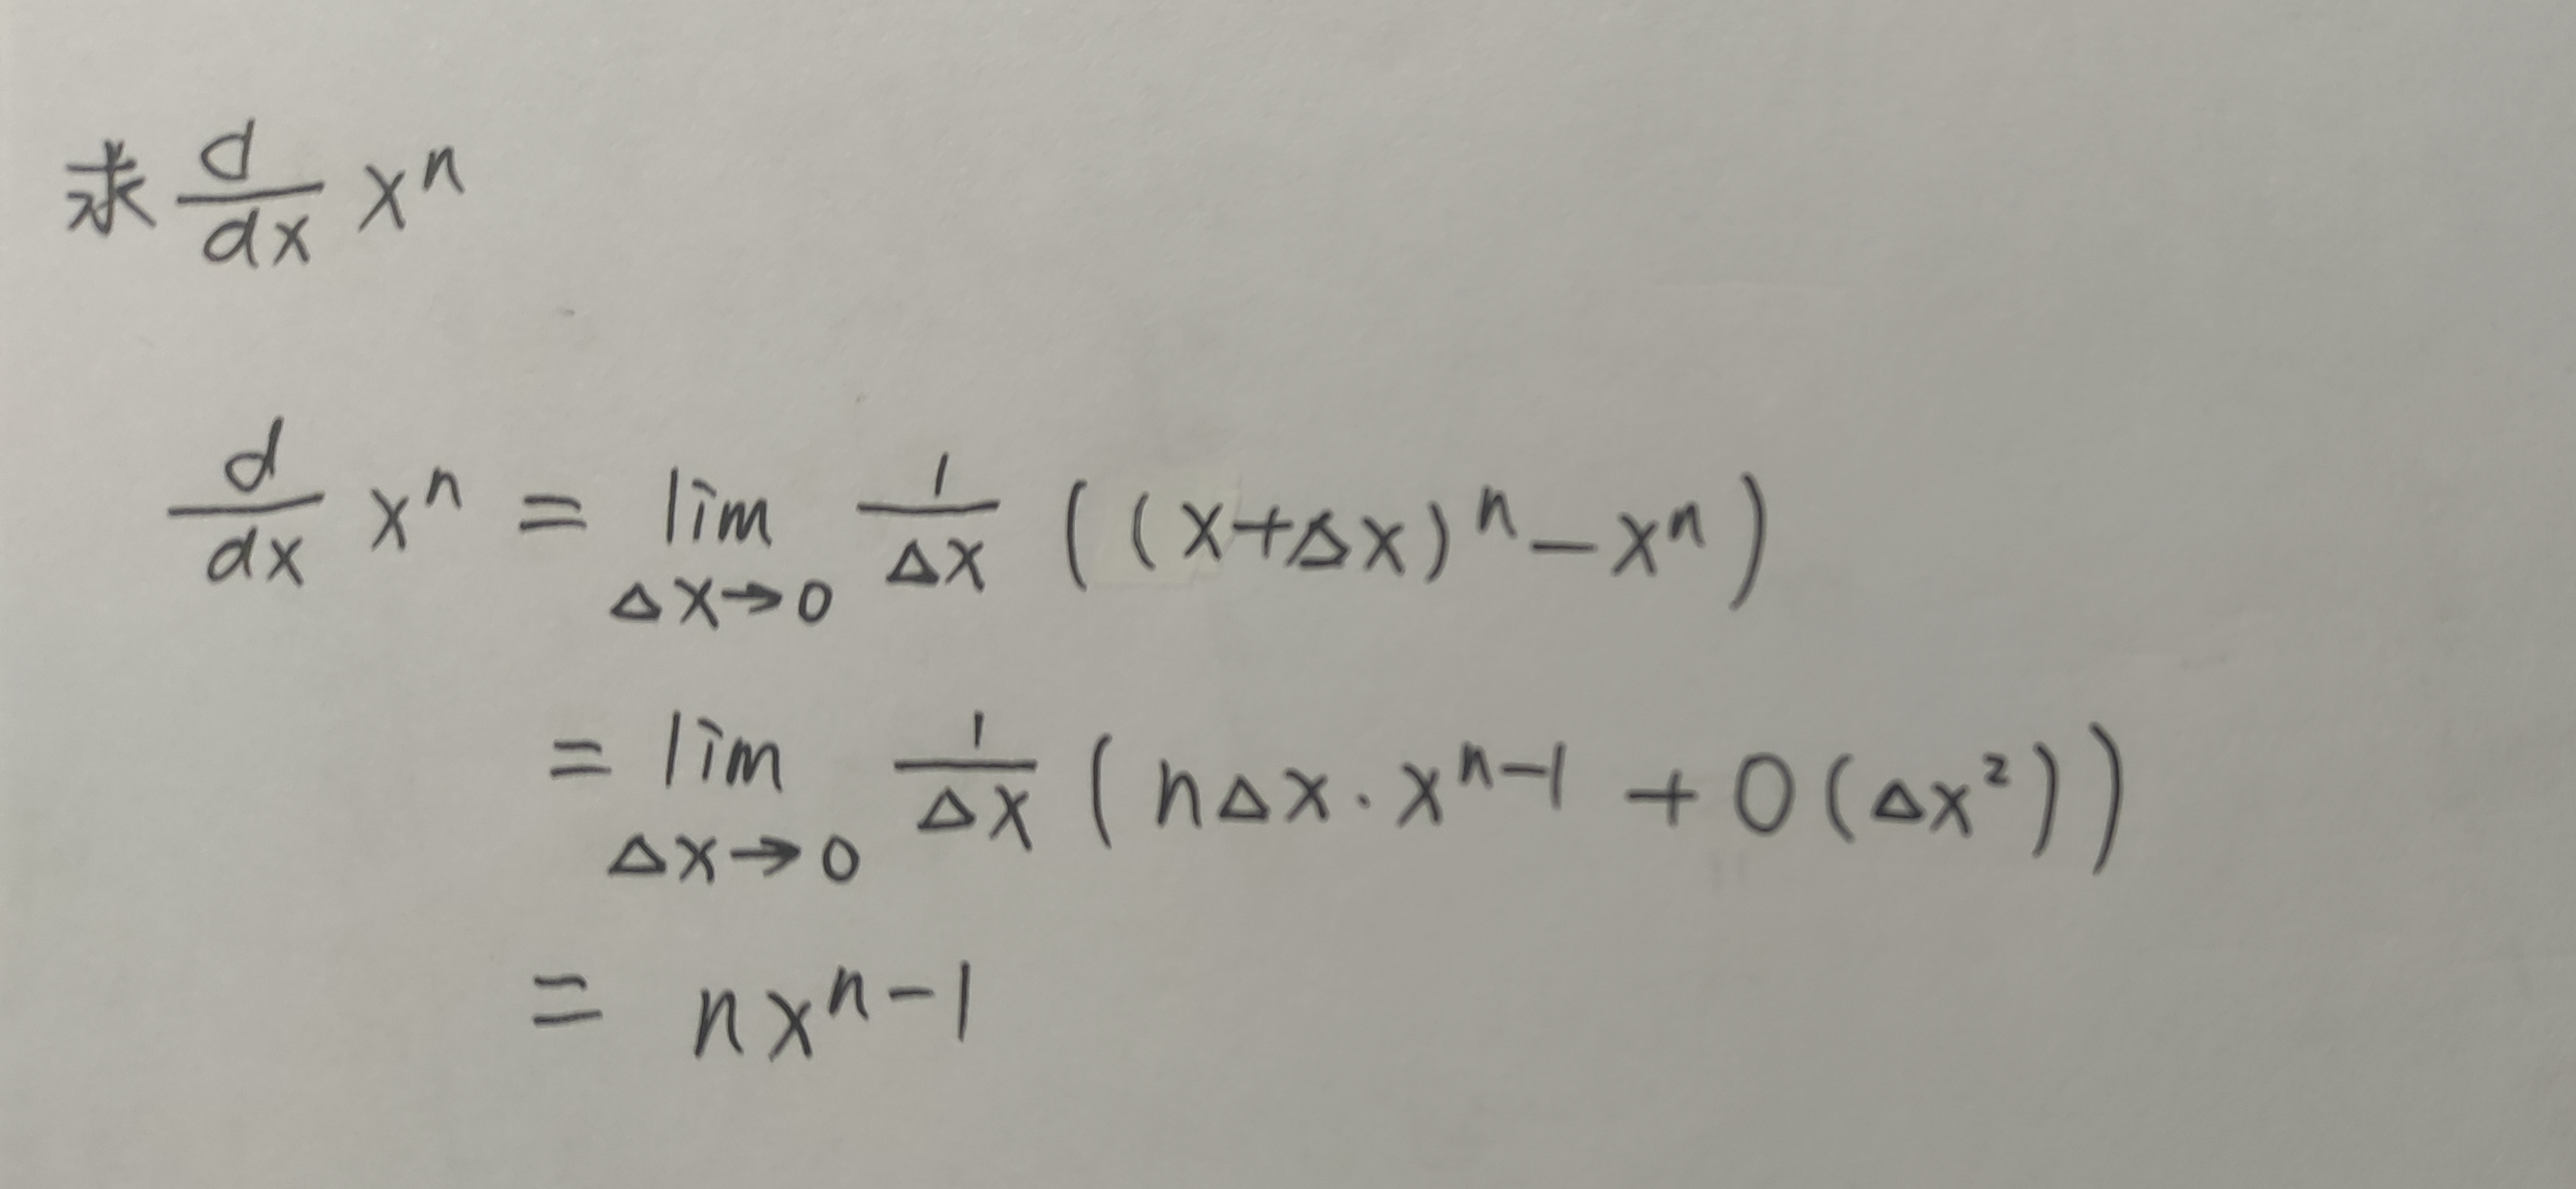 求 d/dx xⁿ
d/dx xⁿ = lim Δx→0 1/Δx ((x+Δx)ⁿ - xⁿ)
= lim Δx→0 1/Δx (nΔx·xⁿ⁻¹ + O(Δx²))
= nxⁿ⁻¹